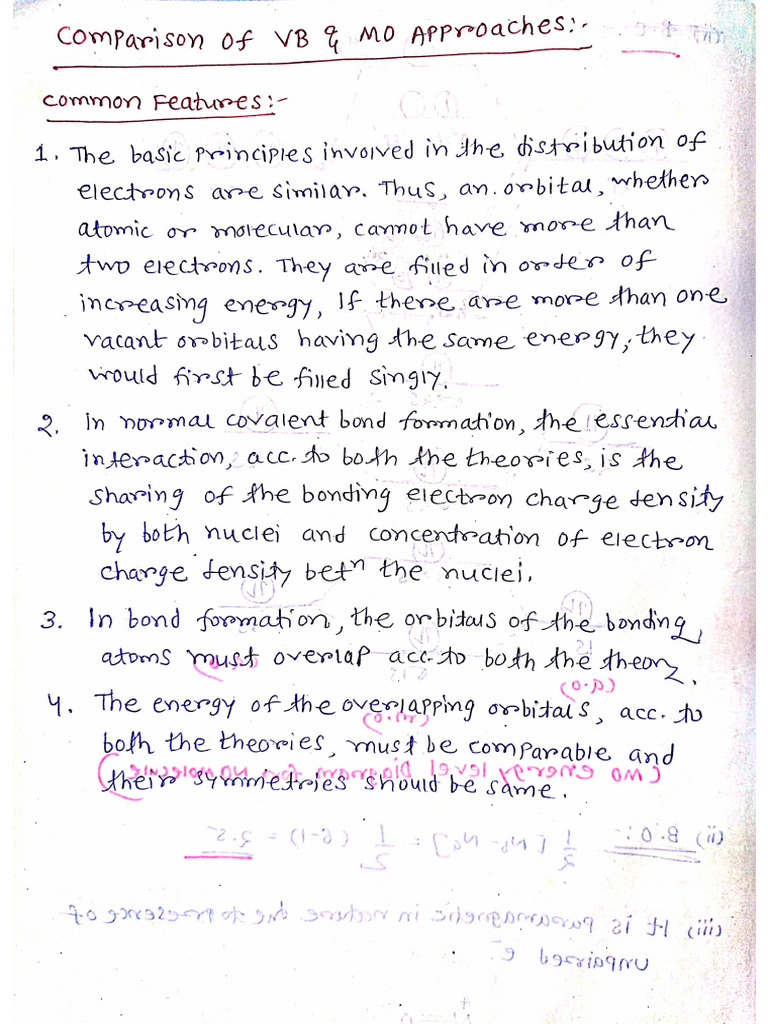 Comparison of VB & MO Approaches:-
Common Features:-
1. The basic principles involved in the distribution of
electrons are similar. Thus, an orbital, whether
atomic or molecular, cannot have more than
two electrons. They are filled in order of
increasing energy, If there are more than one
vacant orbitals having the same energy, they
would first be filled singly.
2. In normal covalent bond formation, the essential
interaction, acc. to both the theories, is the
sharing of the bonding electron charge density
by both nuclei and concentration of electron
charge density betn the nuclei.
3. In bond formation, the orbitals of the bonding
atoms must overlap acc. to both the theory.
4. The energy of the overlapping orbitals, acc. to
both the theories, must be comparable and
their symmetries should be same.
(ii) B.O:- 1/2 [Nb-Na] = 1/2 (6-1) = 2.5
(iii) It is paramagnetic in nature due to presence of
unpaired e-